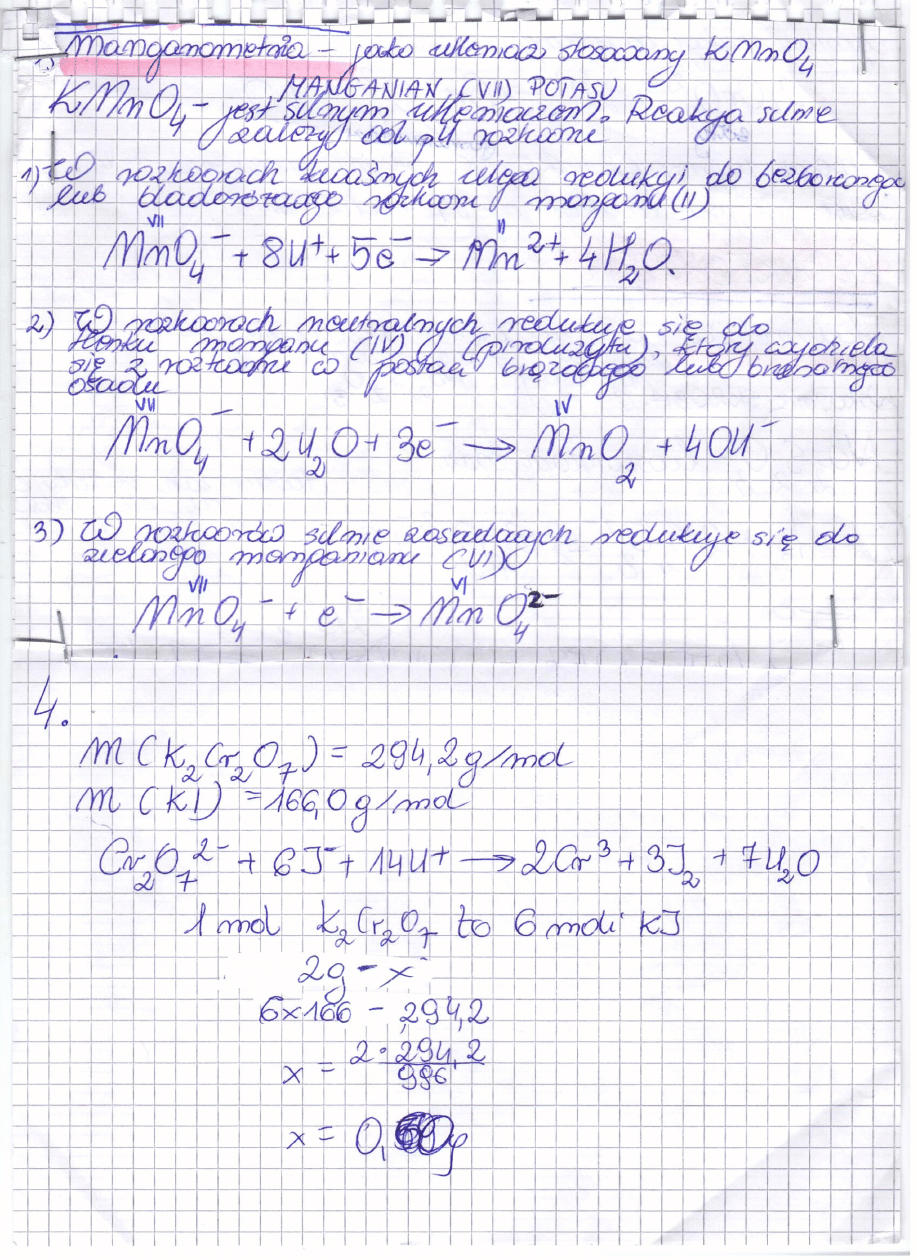 Manganometria – jako utleniacz stosowany KMnO₄
MANGANIAN (VII) POTASU
KMnO₄ – jest silnym utleniaczem. Reakcja silnie
zależy od pH roztworu
1) W roztworach kwaśnych ulega redukcji do bezbarwnego
lub bladoróżowego roztworu manganu (II)
VII II
MnO₄⁻ + 8H⁺ + 5e⁻ → Mn²⁺ + 4H₂O.
2) W roztworach neutralnych redukuje się do
tlenku manganu (IV) (piroluzytu), który wydziela
się z roztworu w postaci brązowego lub brunatnego
osadu
VII IV
MnO₄⁻ + 2H₂O + 3e⁻ → MnO₂ + 4OH⁻
3) W roztworów silnie zasadowych redukuje się do
zielonego manganianu (VI)
VII VI
MnO₄⁻ + e⁻ → MnO₄²⁻
4.
M (K₂Cr₂O₇) = 294,2 g/mol
M (KI) = 166,0 g/mol
Cr₂O₇²⁻ + 6J⁻ + 14H⁺ → 2Cr³ + 3J₂ + 7H₂O
1 mol K₂Cr₂O₇ to 6 moli KJ
2g – x
6x166 – 294,2
x = 2·294,2
996
x = 0, g